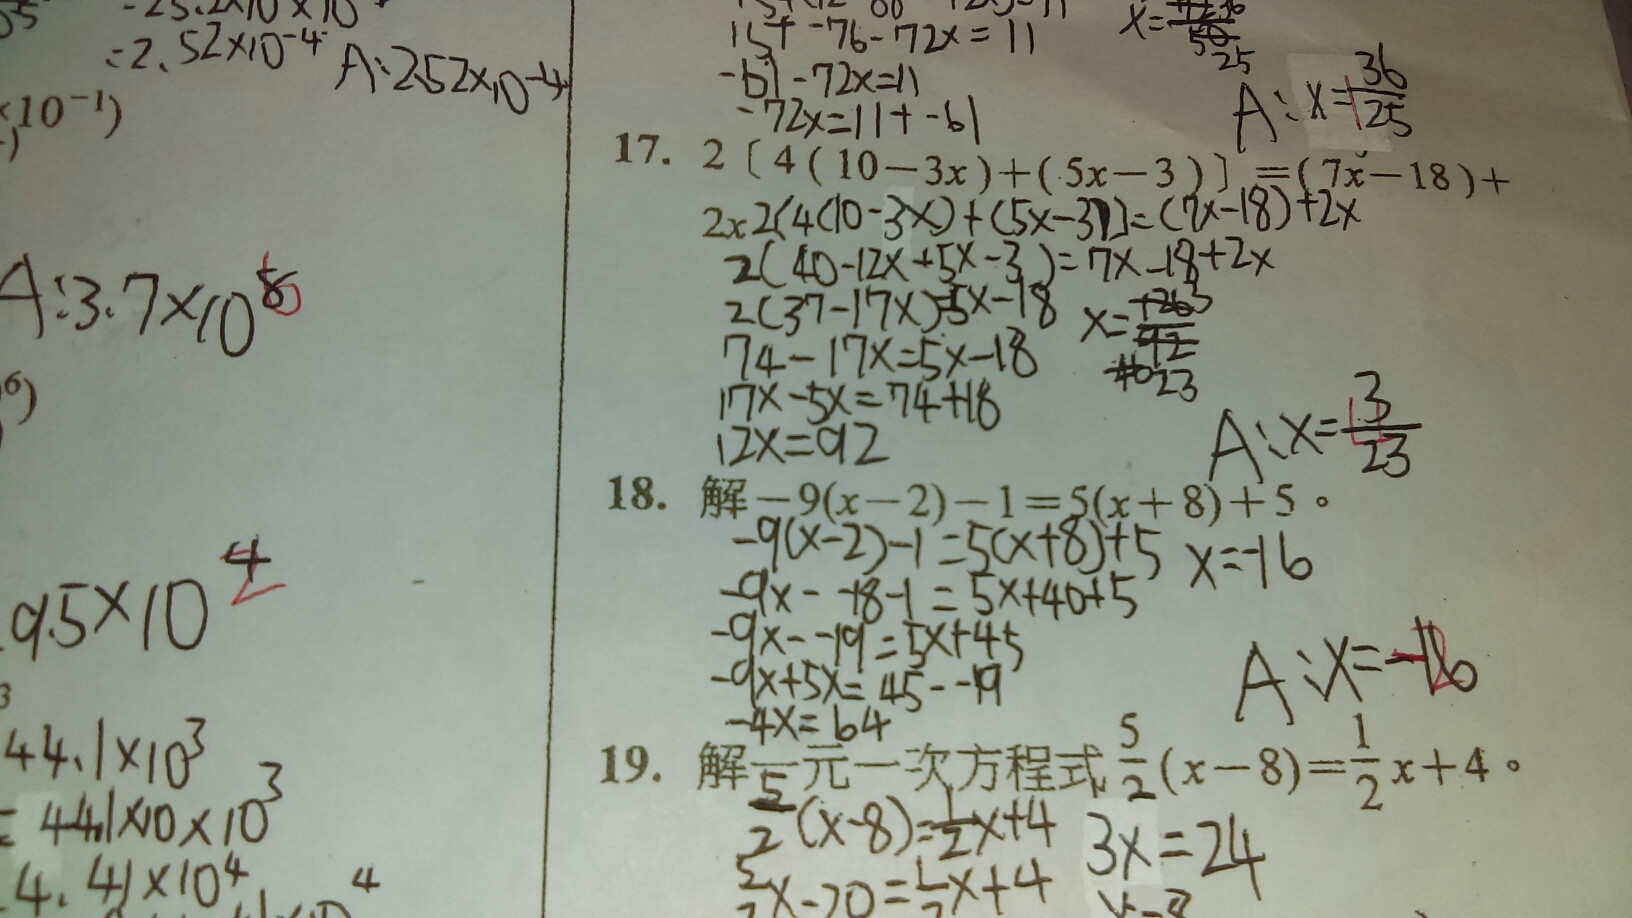 =2.52×10⁻⁴
A:2.52×10⁻⁴
×10⁻¹)
A:3.7×10
⁶)
.95×10
44.1×10³
= 44.1×10×10³
4.41×10⁴
15+ -76-72x=11
-61-72x=11
-72x=11+-61
25
A:x=36/25
17. 2〔4(10-3x)+(5x-3)〕=(7x-18)+
2x2[4(10-3x)+(5x-3)]=(7x-18)+2x
2(40-12x+5x-3)=7x-18+2x
2(37-17x)=5x-18
74-17x=5x-18
17x-5x=74+18
12x=92
x=
23
A:x=3/23
18. 解-9(x-2)-1=5(x+8)+5。
-9(x-2)-1=5(x+8)+5
-9x- -18-1=5x+40+5
-9x--19=5x+45
-9x+5x=45--19
-4x=64
x=-16
A:x=-16
19. 解一元一次方程式 5/2(x-8)=1/2x+4。
5/2(x-8)=1/2x+4
x-20=1/2x+4
3x=24